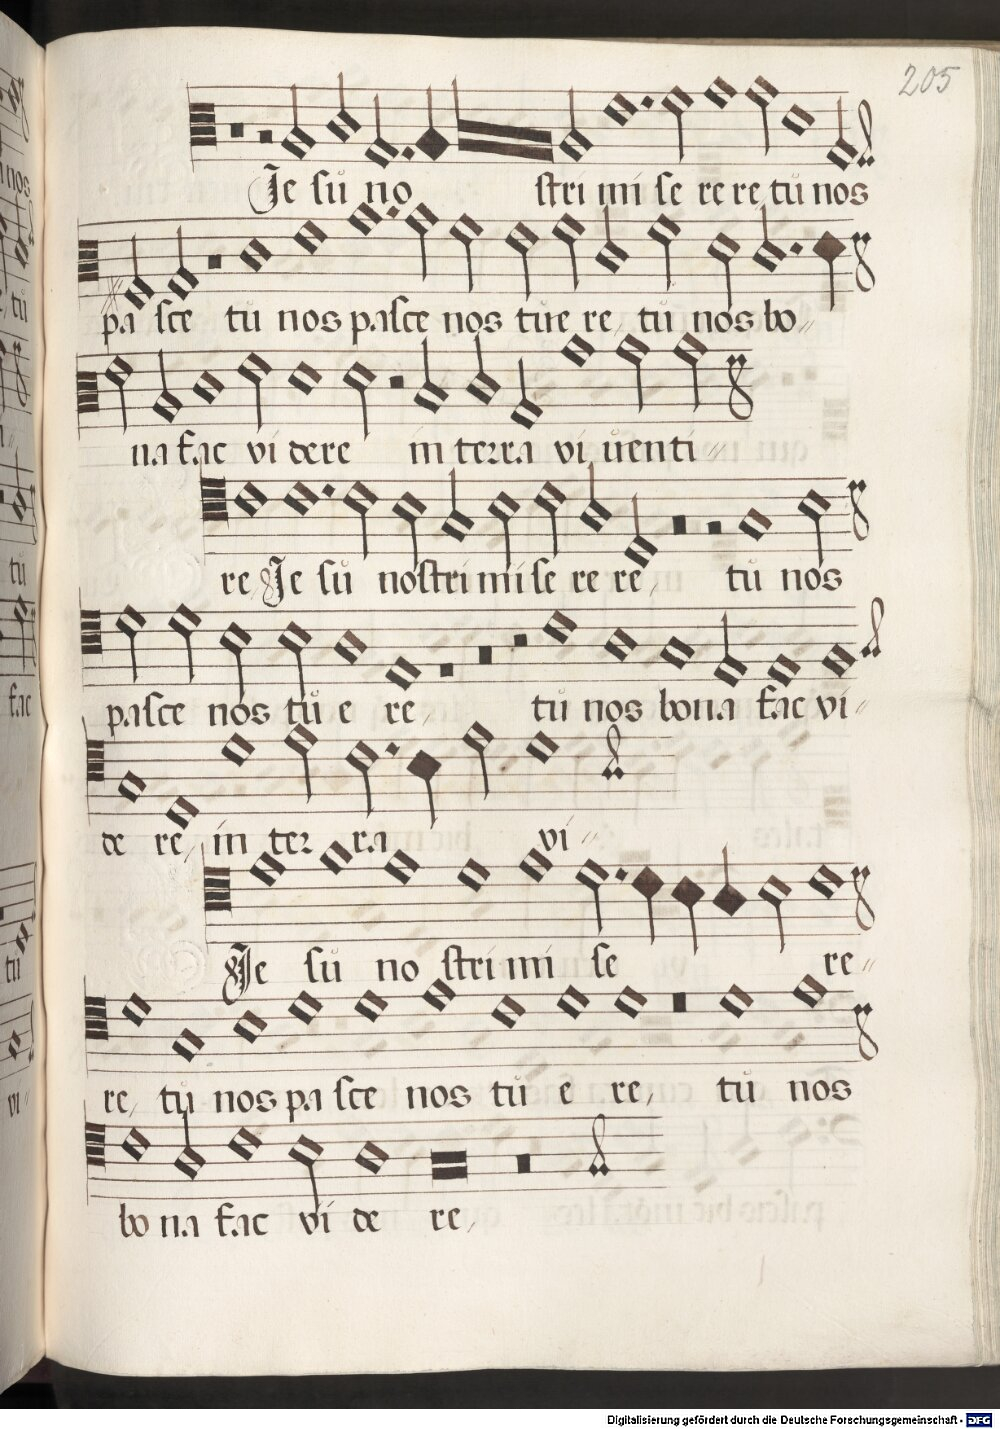 205
Je sů no stri mi se re re, tů nos
pa sce tů nos pasce nos tůe re, tů nos bo〃
na fac vi dere in terra vi uenti〃
re, Je sů nostri mi se re re, tů nos
pasce nos tů e re, tů nos bona fac vi〃
de re, in ter ra vi〃
Je sů no stri mi se re〃
re, tů nos pa sce nos tů e re, tů nos
bo na fac vi de re,
Digitalisierung gefördert durch die Deutsche Forschungsgemeinschaft - DFG